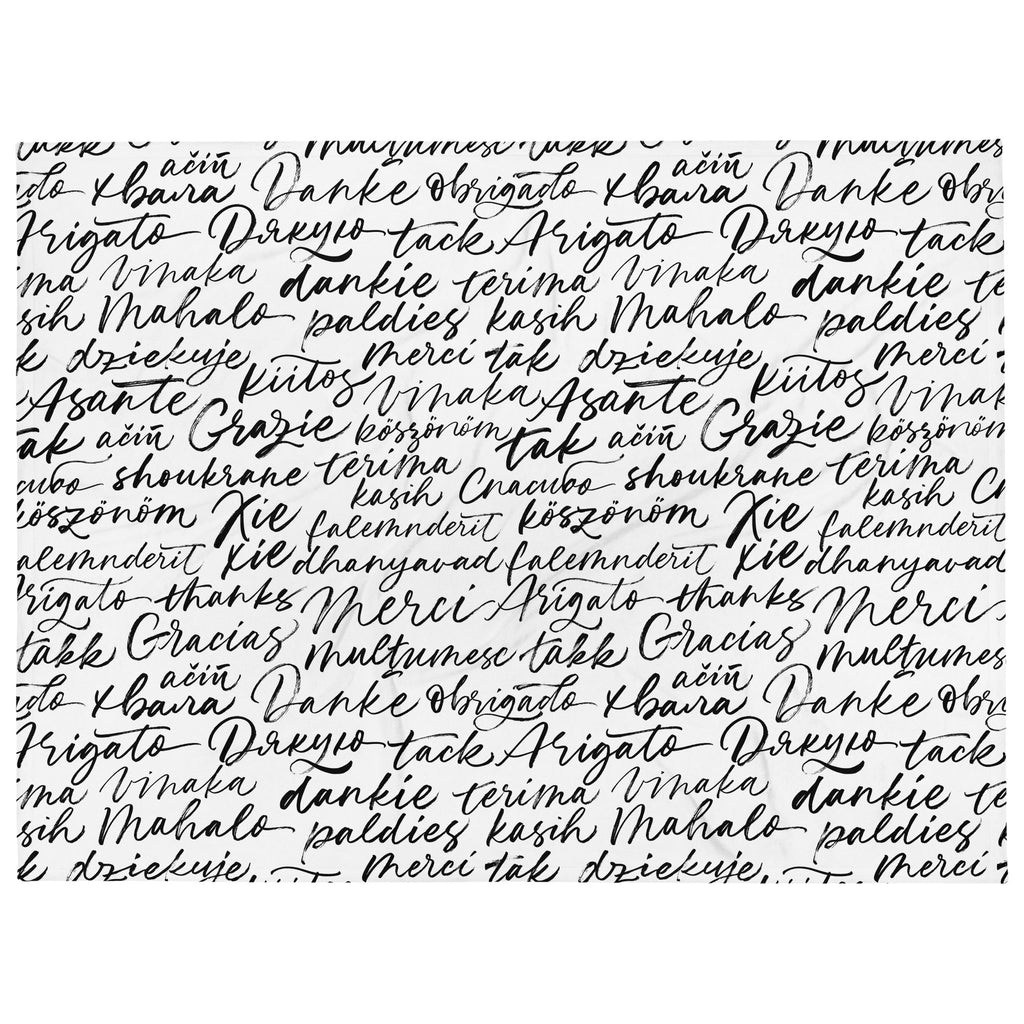 takk multumesc takk multumesc
ačiū ačiū
хвала Danke obrigado хвала Danke
Arigato Дякую tack Arigato Дякую tack
vinaka dankie terima vinaka dankie
Mahalo paldies kasih Mahalo paldies
dziekuje merci tak dziekuje merci
Asante kiitos vinaka Asante kiitos
tak ačiū Grazie köszönöm tak ačiū Grazie köszönöm
shoukrane terima Спасибо shoukrane terima
kasih kasih
köszönöm Xie falemnderit köszönöm Xie falemnderit
falemnderit xie dhanyavad falemnderit xie dhanyavad
Arigato thanks Merci Arigato thanks Merci
takk Gracias multumesc takk Gracias multumesc
ačiū ačiū
хвала Danke obrigado хвала Danke
Arigato Дякую tack Arigato Дякую tack
vinaka dankie terima vinaka dankie
Mahalo paldies kasih Mahalo paldies
dziekuje merci tak dziekuje merci